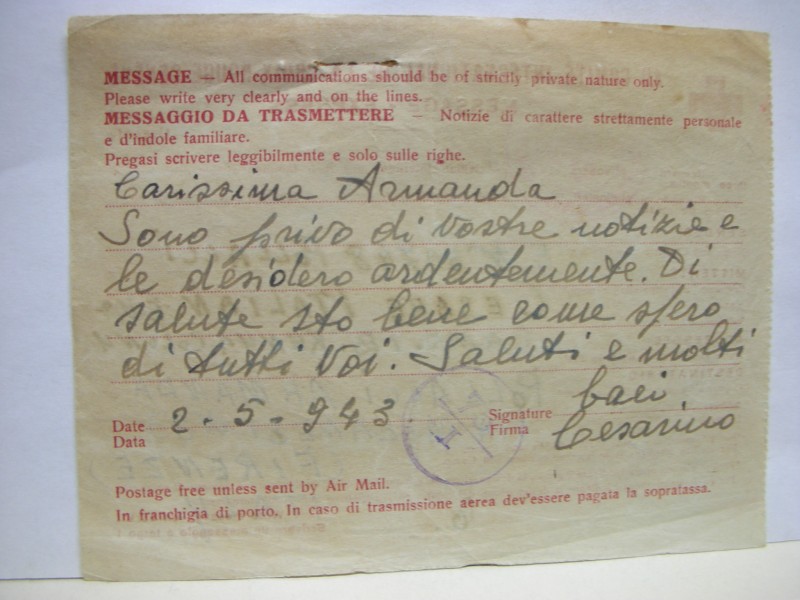 MESSAGE — All communications should be of strictly private nature only.
Please write very clearly and on the lines.
MESSAGGIO DA TRASMETTERE — Notizie di carattere strettamente personale
e d'indole familiare.
Pregasi scrivere leggibilmente e solo sulle righe.
Carissima Armanda
Sono privo di vostre notizie e
le desidero ardentemente. Di
salute sto bene come spero
di tutti Voi. Saluti e molti
baci
Date Data 2-5-943 Signature Firma Cesarino
Postage free unless sent by Air Mail.
In franchigia di porto. In caso di trasmissione aerea dev'essere pagata la sopratassa.